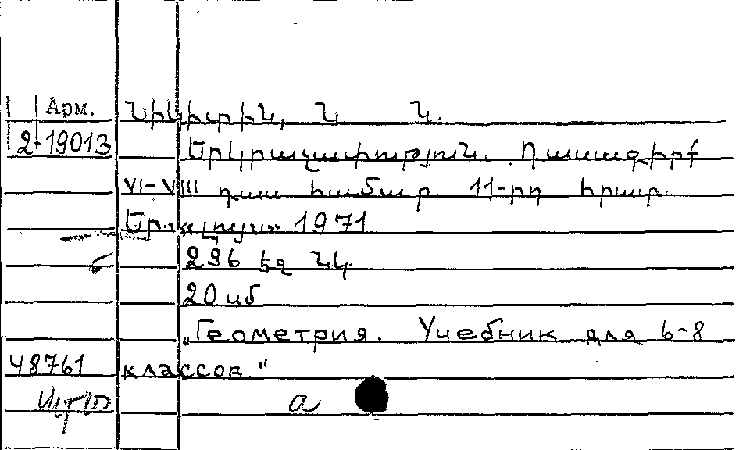 Арм. Նիկիտին, Ն Ն.
2-19013 Երկրաչափություն. Դասագիրք
VI-VIII դաս համար 11-րդ հրատ.
Եր. «Լույս» 1971
296 էջ նկ
20 սմ
"Геометрия. Учебник для 6-8
48761 классов"
а